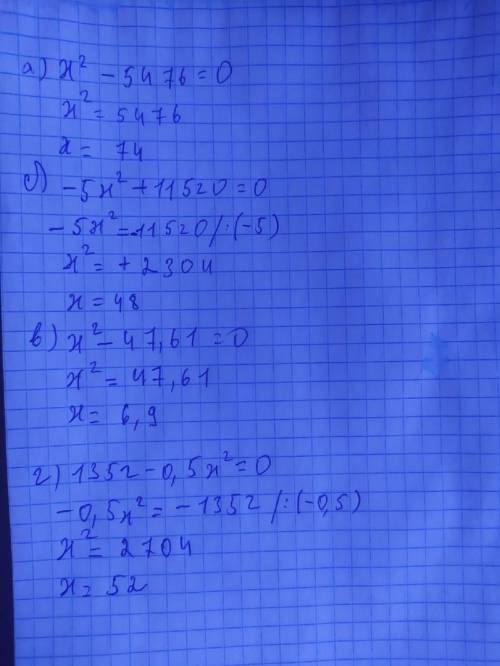 а) x² - 5476 = 0
x² = 5476
x = 74
б) -5x² + 11520 = 0
-5x² = -11520 /:(-5)
x² = + 2304
x = 48
в) x² - 47,61 = 0
x² = 47,61
x = 6,9
г) 1352 - 0,5x² = 0
-0,5x² = -1352 /:(-0,5)
x² = 2704
x = 52